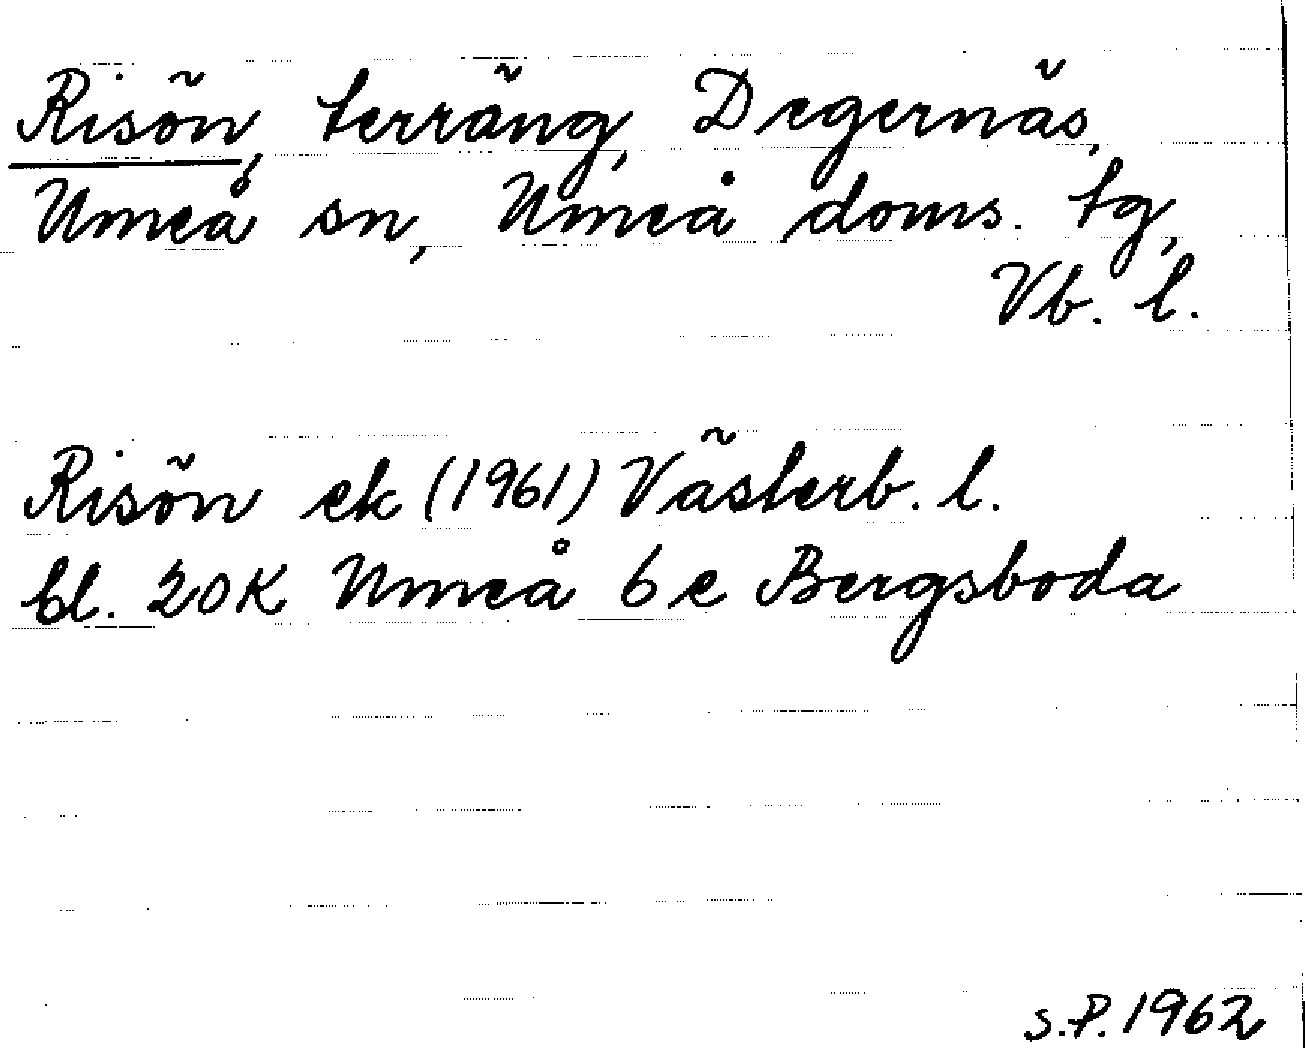 Risön, terräng, Degernäs,
Umeå sn, Umeå doms. tg,
Vb. l.
Risön ek (1961) Västerb. l.
bl. 20K Umeå 6 e Bergsboda
S.P. 1962